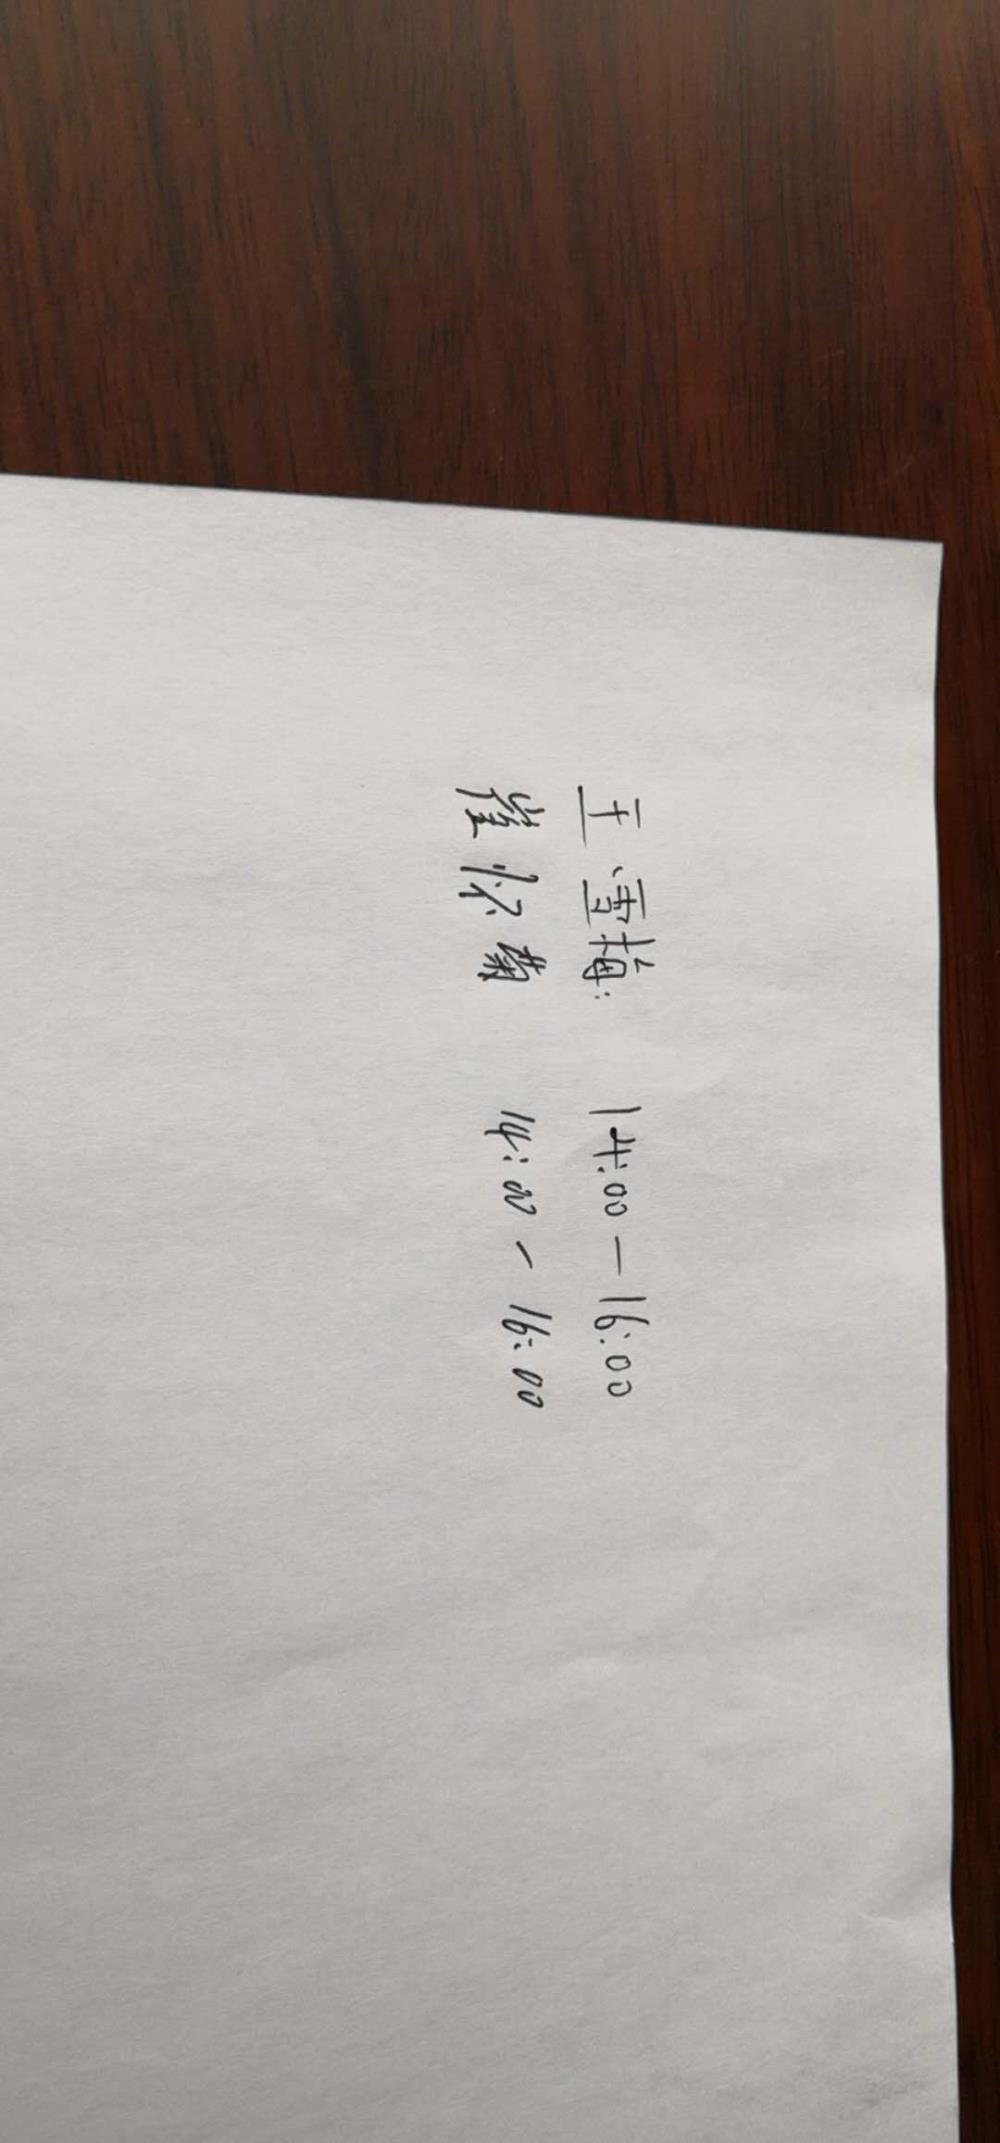 王雪梅: 14:00—16:00
崔怀菊 14:00-16:00